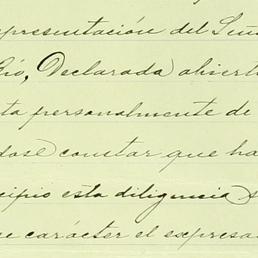 epresentación del Seño
ció, Declarada abierta
ta personalmente de
dose constar que ha
cipio esta diligencia s
se carácter el expresa